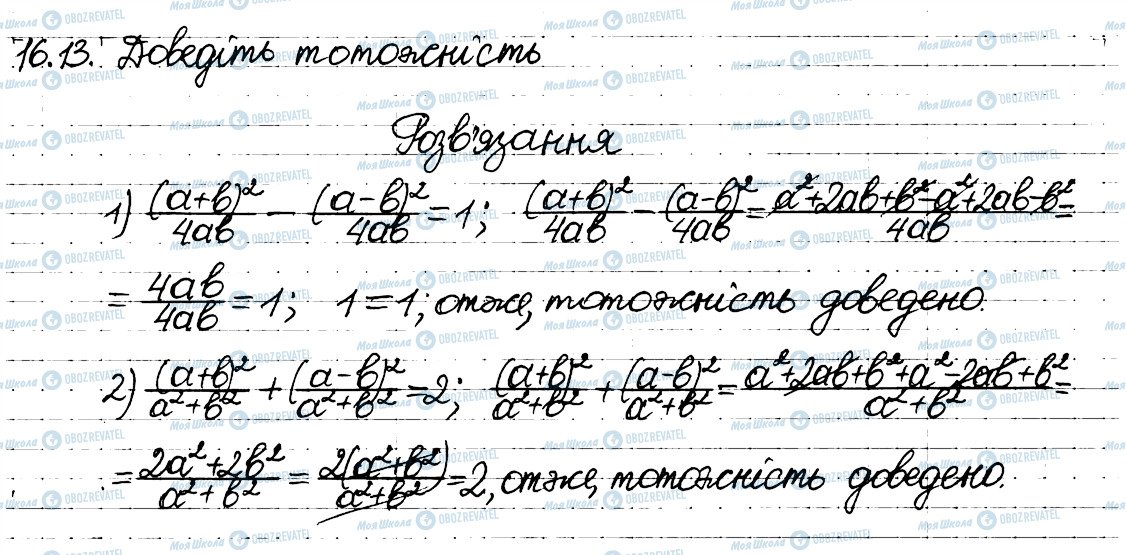 16.13. Доведіть тотожність
Розв'язання
1) (a+b)²/4ab − (a−b)²/4ab = 1; (a+b)²/4ab − (a−b)²/4ab = a²+2ab+b²−a²+2ab−b²/4ab =
= 4ab/4ab = 1; 1 = 1; отже, тотожність доведено.
2) (a+b)²/a²+b² + (a−b)²/a²+b² = 2; (a+b)²/a²+b² + (a−b)²/a²+b² = a²+2ab+b²+a²−2ab+b²/a²+b² =
= 2a²+2b²/a²+b² = 2(a²+b²)/a²+b² = 2, отже, тотожність доведено.